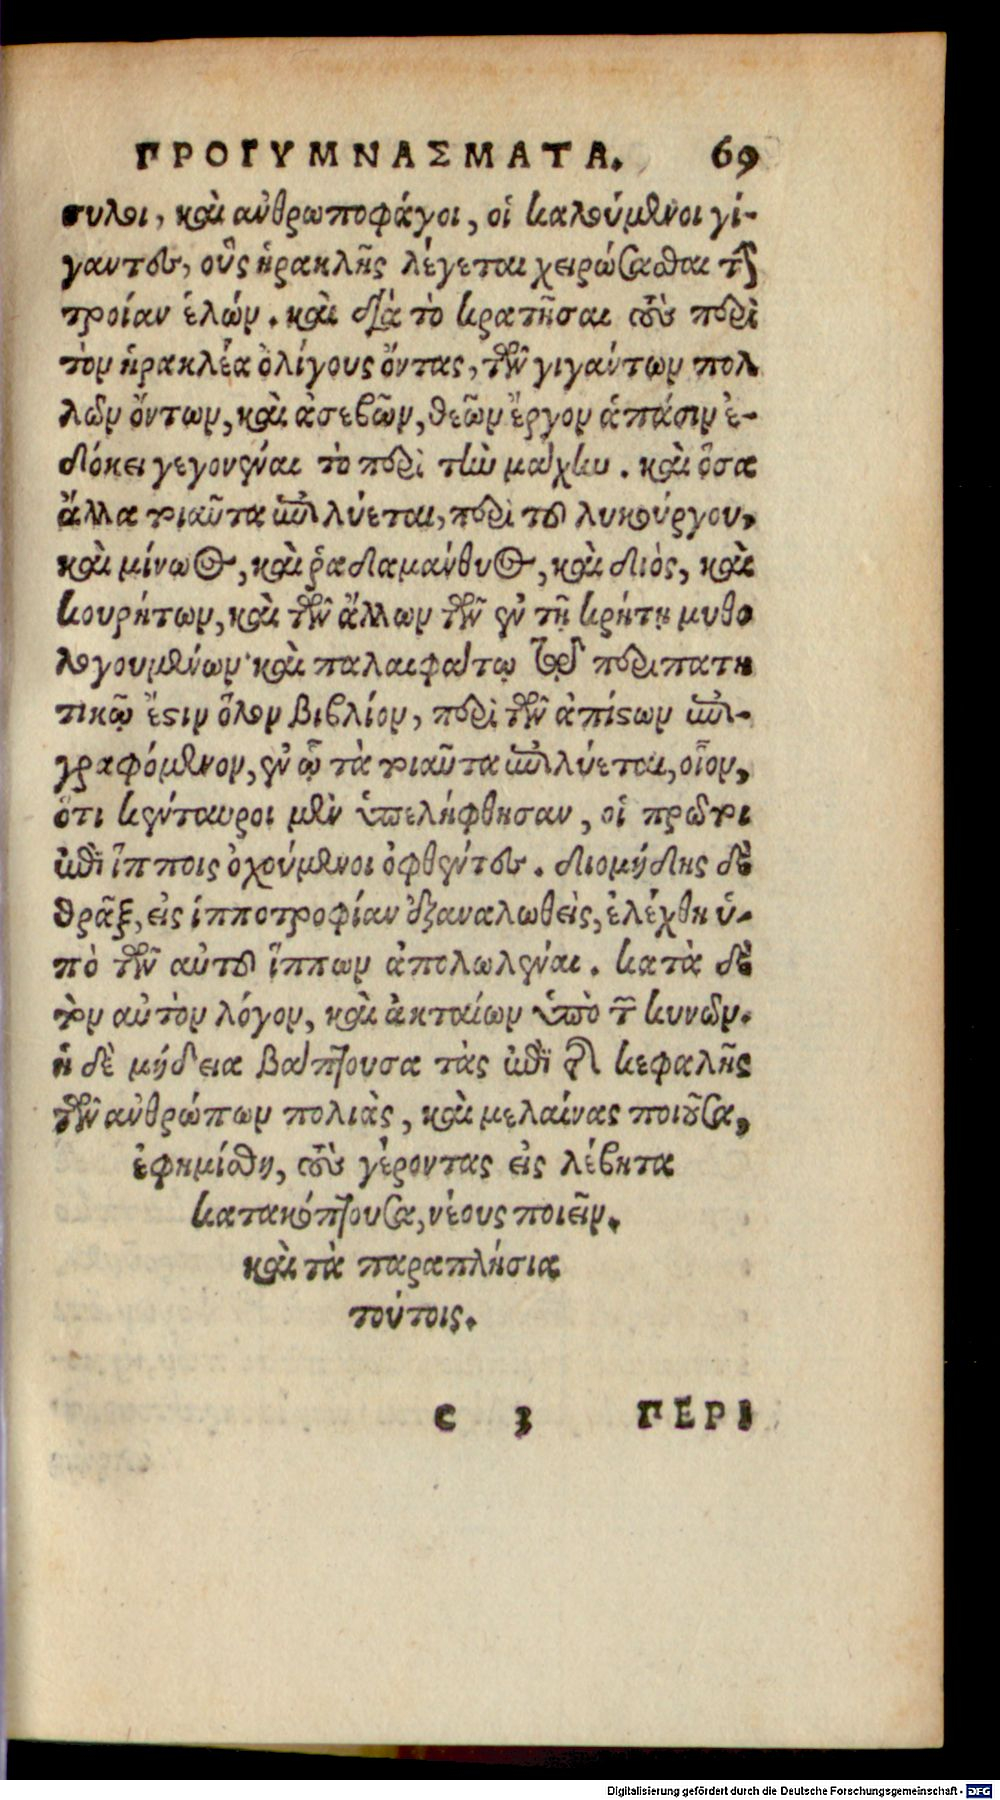 ΠΡΟΓΥΜΝΑΣΜΑΤΑ. 69
συλοι, καὶ ἀνθρωποφάγοι, οἱ καλούμενοι γί-
γαντες, οὓς ἡρακλῆς λέγεται χειρώσασθαι τὴν
τροίαν ἑλών. καὶ διὰ τὸ κρατῆσαι τοὺς περὶ
τὸν ἡρακλέα ὀλίγους ὄντας, τῶν γιγάντων πολ
λῶν ὄντων, καὶ ἀσεβῶν, θεῶν ἔργον ἅπασιν ἐ-
δόκει γεγονέναι τὸ περὶ τὴν μάχην. καὶ ὅσα
ἄλλα τοιαῦτα ἐπιλύεται, περὶ τοῦ λυκούργου,
καὶ μίνωος, καὶ ῥαδαμάνθυος, καὶ διὸς, καὶ
κουρήτων, καὶ τῶν ἄλλων τῶν ἐν τῇ κρήτῃ μυθο
λογουμένων· καὶ παλαιφάτῳ τῷ περιπατη
τικῷ ἔστιν ὅλον βιβλίον, περὶ τῶν ἀπίστων ἐπι-
γραφόμενον, ἐν ᾧ τὰ τοιαῦτα ἐπιλύεται, οἷον,
ὅτι κένταυροι μὲν ὑπελήφθησαν, οἱ πρῶτοι
ἐπὶ ἵπποις ὀχούμενοι ὀφθέντες. διομήδης δὲ
θρᾷξ, εἰς ἱπποτροφίαν ἐξαναλωθεὶς, ἐλέχθη ὑ-
πὸ τῶν αὐτοῦ ἵππων ἀπολωλέναι. κατὰ δὲ
τὸν αὐτὸν λόγον, καὶ ἀκταίων ὑπὸ τῶν κυνῶν.
ἡ δὲ μήδεια βάπτουσα τὰς ἐπὶ τῆς κεφαλῆς
τῶν ἀνθρώπων πολιὰς, καὶ μελαίνας ποιοῦσα,
ἐφημίσθη, τοὺς γέροντας εἰς λέβητα
κατακόπτουσα, νέους ποιεῖν.
καὶ τὰ παραπλήσια
τούτοις.
c 3 ΠΕΡΙ
Digitalisierung gefördert durch die Deutsche Forschungsgemeinschaft - DFG